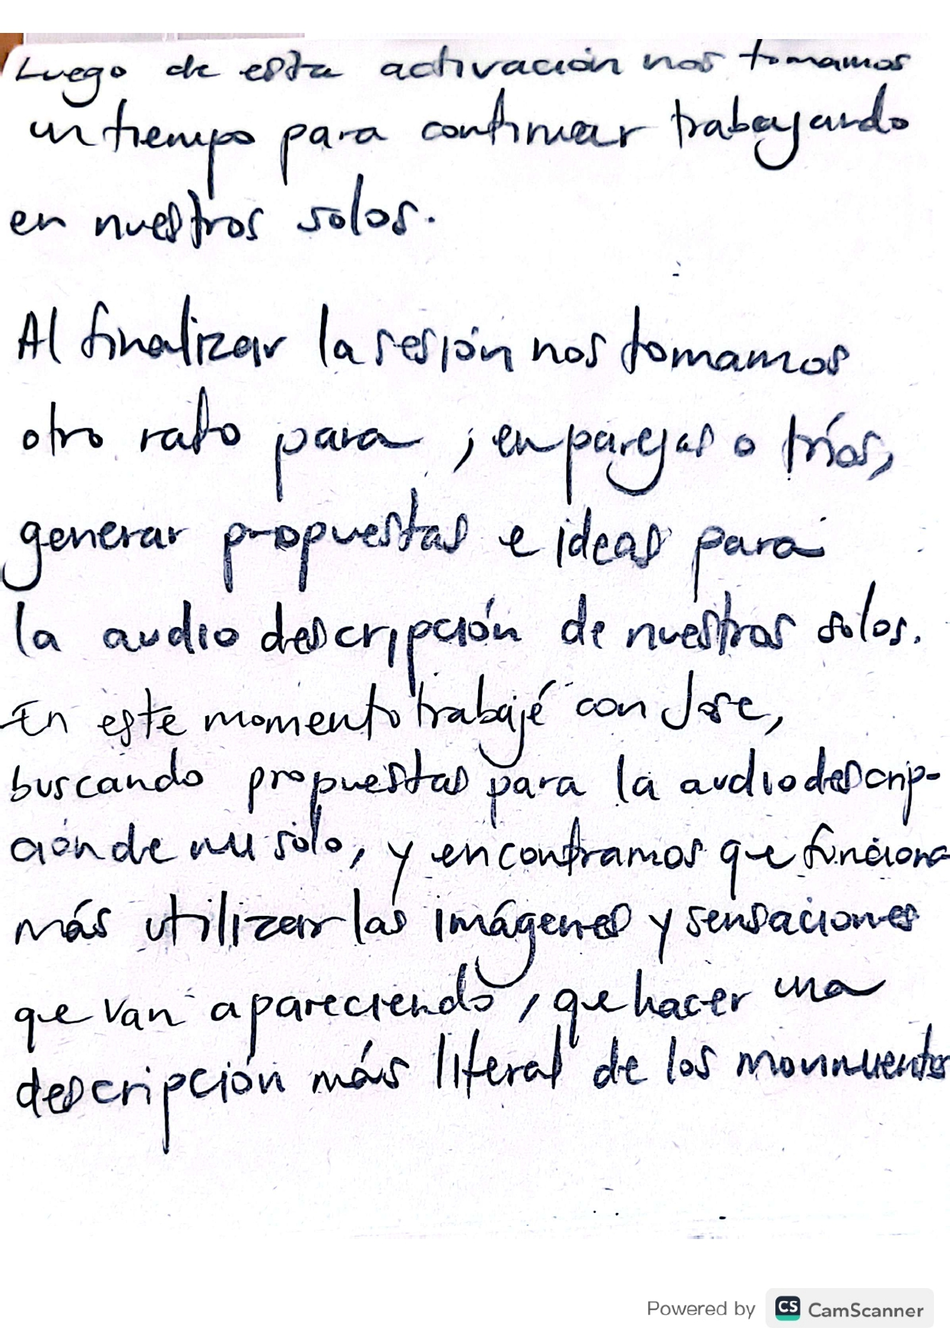 Luego de esta activación nos tomamos
un tiempo para continuar trabajando
en nuestros solos.
Al finalizar la sesión nos tomamos
otro rato para, en parejas o tríos,
generar propuestas e ideas para
la audio descripción de nuestros solos.
En este momento trabajé con Jose,
buscando propuestas para la audiodescrip-
ción de mi solo, y encontramos que funciona
más utilizar las imágenes y sensaciones
que van apareciendo, que hacer una
descripción más literal de los movimientos
Powered by CS CamScanner